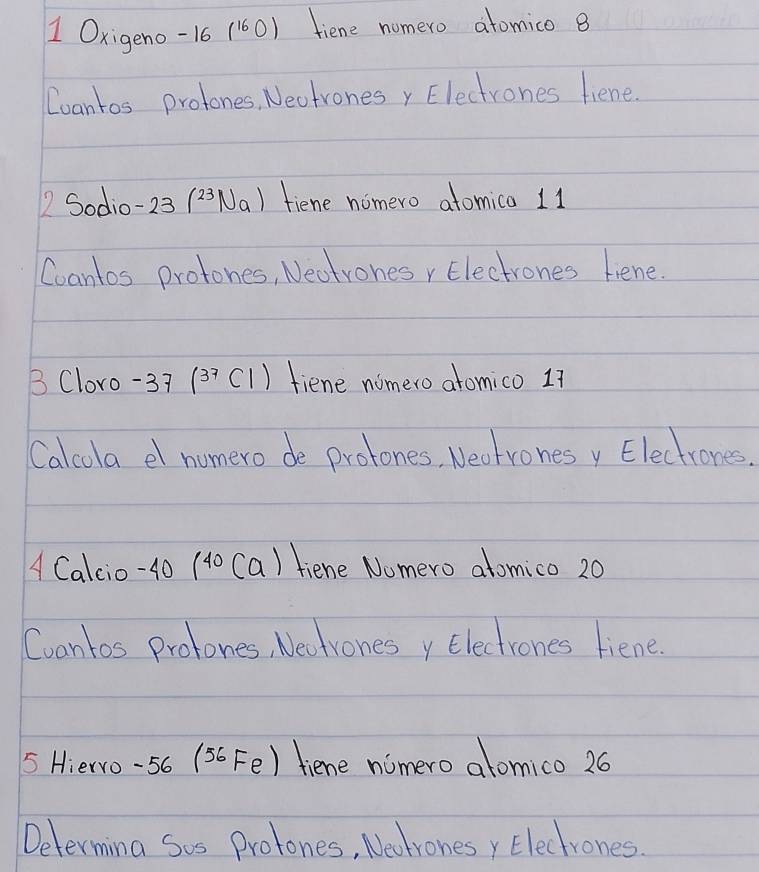 1 Oxigeno -16 (¹⁶O) tiene numero átomico 8
Cuantos protones, Neutrones y Electrones tiene.
2 Sodio-23 (²³Na) tiene número atomica 11
Cuantos protones, Neutrones y Electrones tiene.
3 Cloro -37 (³⁷Cl) tiene número atomico 17
Calcula el numero de protones, Neutrones y Electrones.
4 Calcio -40 (⁴⁰Ca) tiene Numero atomico 20
Cuantos Protones, Neutrones y Electrones tiene.
5 Hierro -56 (⁵⁶Fe) tiene número atomico 26
Determina Sus Protones, Neutrones y Electrones.